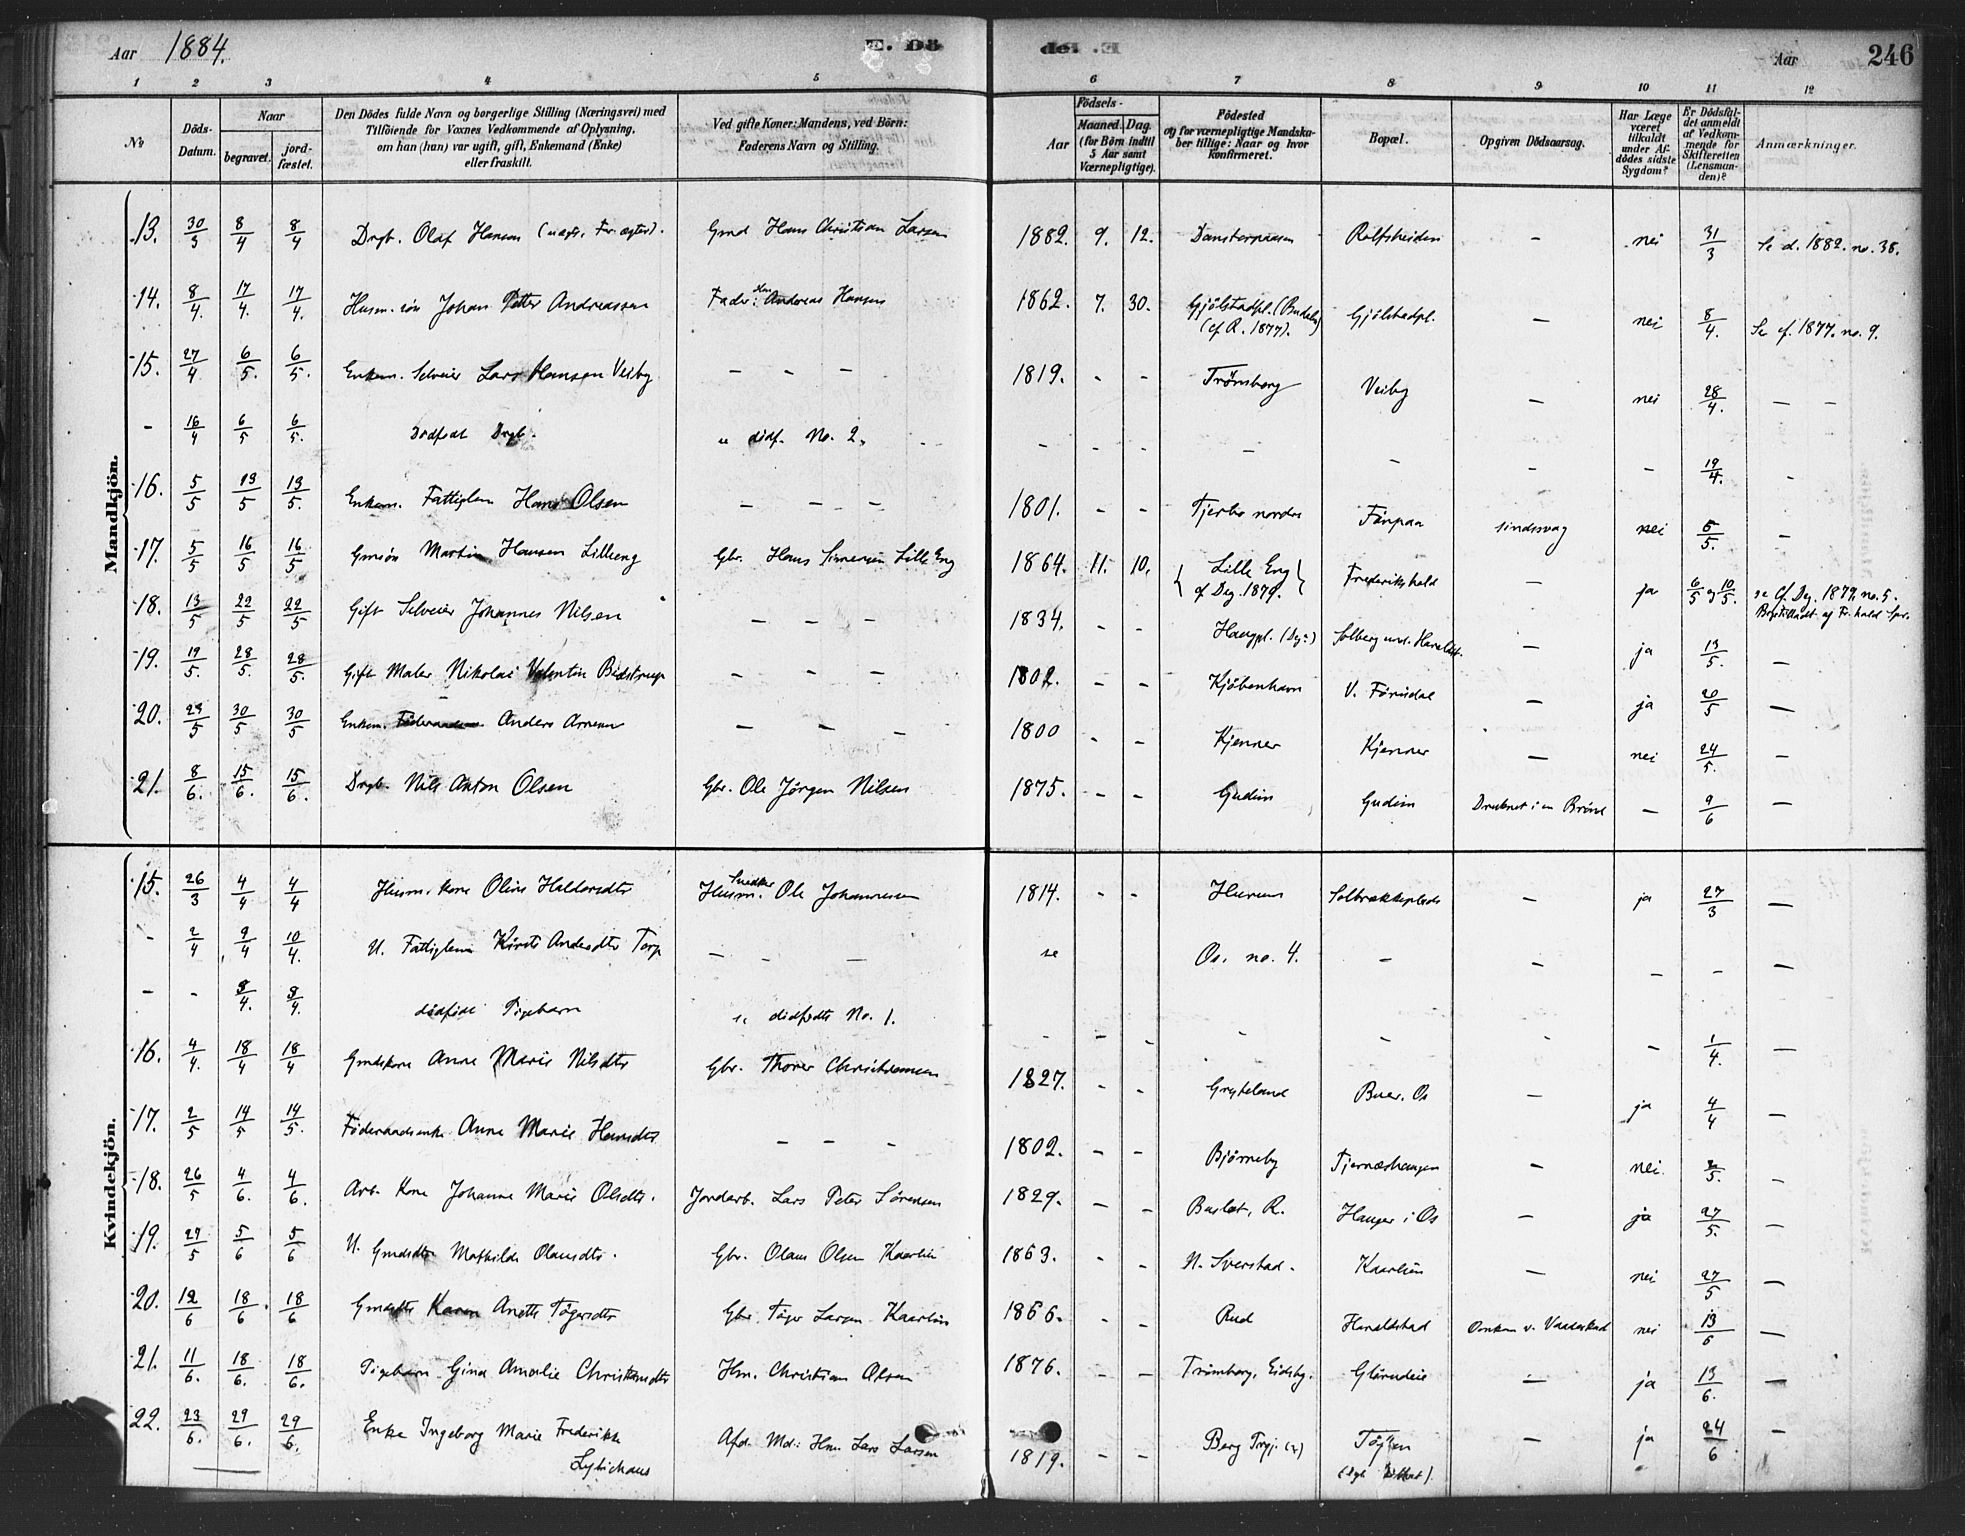 Aar 1884.
E. Dö
del. E.
Aar 246
1 2 3 4 5 6 7 8 9 10 11 12
No
Döds-Datum.
Naar
begravet.
jord-fæstet.
Den Dödes fulde Navn og borgerlige Stilling (Næringsvei) med
Tilföiende for Voxnes Vedkommende af Oplysning,
om han (han) var ugift, gift, Enkemand (Enke)
eller fraskilt.
Ved gifte Koner: Mandens, ved Börn:
Faderens Navn og Stilling.
Födsels-
Aar
Maaned. Dag.
(for Börn indtil
5 Aar samt
Værnepligtige).
Födested
og for værnepligtige Mandska-
ber tillige: Naar og hvor
konfirmeret.
Bopæl.
Opgiven Dödsaarsag.
Har Læge
været
tilkaldt
under Af-
dödes sidste
Sygdom?
Er Dödsfal-
det anmeldt
af Vedkom-
mende for
Skifteretten
(Lensman-
den)?
Anmærkninger.
Mandkjön.
13. 30/3 8/4 8/4 Drgb. Olaf Hansen Gmd Hans Christian Larsen 1882. 9. 12. Rolfsheiden – nei 31/3 Se d. 1882. no. 38.
14. 8/4. 17/4. 17/4. Husm. søn Johan Petter Andreassen Fader: Andreas Hansen 1862. 7. 30. Gjölstadpl.
(cf. R. 1877). Gjölstadpl. – nei 8/4. Se cf. 1877. no. 9.
15. 27/4 6/5. 6/5. Enkem. Selveier Lars Hansen Veiby – – – 1819. - - Trömborg Veiby – nei 28/4. – –
- 16/4 6/5 6/5. Dödfödt Drgb. dödf. No. 2. - - - - - - - 19/4. -
16. 5/5 13/5 13/5. Enkem. Fattiglem Hans Olsen – – – 1801. - - Tjerbo nordre sindssvag nei 5/5. –
17. 5/5 16/5 16/5 Gmsøn Martin Hansen Lilleeng Gbr. Hans Simensen Lille Eng 1864. 11. 10. Lille Eng
cf Deg. 1879. Frederikshald – ja 6/5 og 10/5. se Cf. Deg. 1879, no. 5.
18. 13/5 22/5 22/5 Gift Selveier Johannes Nilsen – – – 1834. - - Haugpl. – ja 13/5. –
19. 19/5. 28/5. 28/5. Gift Maler Nikolai Valentin Bidstrup – – – 1802. - - Kjöbenhavn – ja 20/5 –
20. 23/5 30/5 30/5 Enkem. Anders Arnesen – – – 1800 - - Kjenner Kjenner – nei 24/5. –
21. 8/6. 15/6. 15/6. Drgb. Nils Anton Olsen Gbr. Ole Jörgen Nilsen 1875. - - Gudim Gudim Druknet i en Brönd – 9/6 –
Kvindekjön.
15. 26/3 4/4 4/4 Husm. kone Oline Haldorsdtr Snedker
Husm. Ole Johannessen 1814. - - Hurum – ja 27/3 –
- 2/4 9/4 10/4. U. Fattiglem Andersdtr Torp – – – se Os. no. 4. – – – - –
- - 3/4. 3/4. dödfödt Pigebarn dödfödte No. 1. - - - - - - - 1/4. –
16. 4/4. 18/4 18/4 Gmdskone Anne Marie Nilsdtr Gbr. Thorer Christensen 1827. - - Grydeland Buer. Os – ja 4/4 –
17. 2/5 14/5 14/5. Föderaadsenke Anne Marie Hansdtr – – - 1802. - - Björneby Tjernæshaugen – nei 2/5. –
18. 26/5 4/6. 4/6. Arb. Kone Johanne Marie Olsdtr. Jordarb. Lars Peter Sörensen 1829. - - R. Hauger i Os – ja 27/5. –
19. 27/5 5/6 5/6 U. Gmdsdtr Mathilde Olausdtr. Gbr. Olaus Olsen Kaarlien 1863. - - N. Sverstad. Kaarlien – nei 27/5 –
20. 12/6 18/6. 18/6 Gmdsdtr Karen Anette Tögersdtr Gbr. Töger Larsen Kaarlien 1866. - - Rud Haraldstad nei 13/6 –
21. 11/6. 18/6. 18/6. Pigebarn Gina Amalie Christiansdtr Hm. Christian Olsen 1876. - - Trömborg, Eidsbg. – ja 13/6. –
22. 23/6. 29/6. 29/6. Enke Ingeborg Marie Frederikke Afd. Md: Hm. Lars Larsen 1819. - - Berg – ja 24/6 –